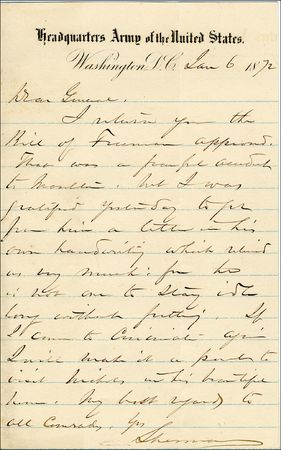 Headquarters Army of the United States.
Washington, D.C. Jan 6 1872
Dear General.
I return you the
Bill of Freeman approved.
That was a painful accident
to Moulton. but I was
gratified yesterday to get
from him a letter in his
own handwriting which relieved
us very much: for he
is not one to stay idle
long without fretting. If
I come to Cincinnati again
I will make it a point to
visit in his beautiful
home. My best regards to
all Comrades, Yrs
Sherman